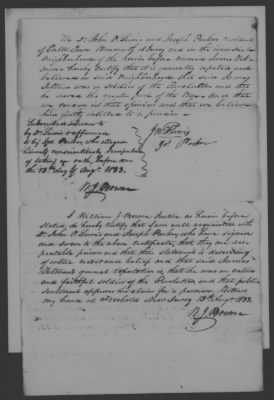 We Dr John P. Lewis and Joseph Parker residents
of Eaton Town Monmouth N Jersey and in the immediate
Neighbourhood of the herein before named James
hereby Certify that it is generally reputed and
believed in said Neighbourhood that said James
was a Soldier of the Revolution and that
he served the
we concur in that opinion and that we believe
him justly entitled to a pension –
Subscribed & Sworn to
by Dr Lewis & affirmed
to by Jos. Parker, who alleges
himself conscientiously scrupulous
of taking an oath, before me
the 13th day of Augt 1833.
Jno P Lewis
Jos Parker
W J Bowne
I William J Bowne Justice as herein before
stated, do hereby certify that I am well acquainted with
Dr John P. Lewis and Joseph Parker, who have signed
and sworn to the above Certificate, that they are
respectable persons and that their statement is deserving
of entire credit and belief and that said James
general reputation is, that he was an active
and faithful Soldier of the Revolution and that public
sentiment approves his claim for a pension, Witness
my hand at Freehold New Jersey 13th Augt. 1833.
W J Bowne